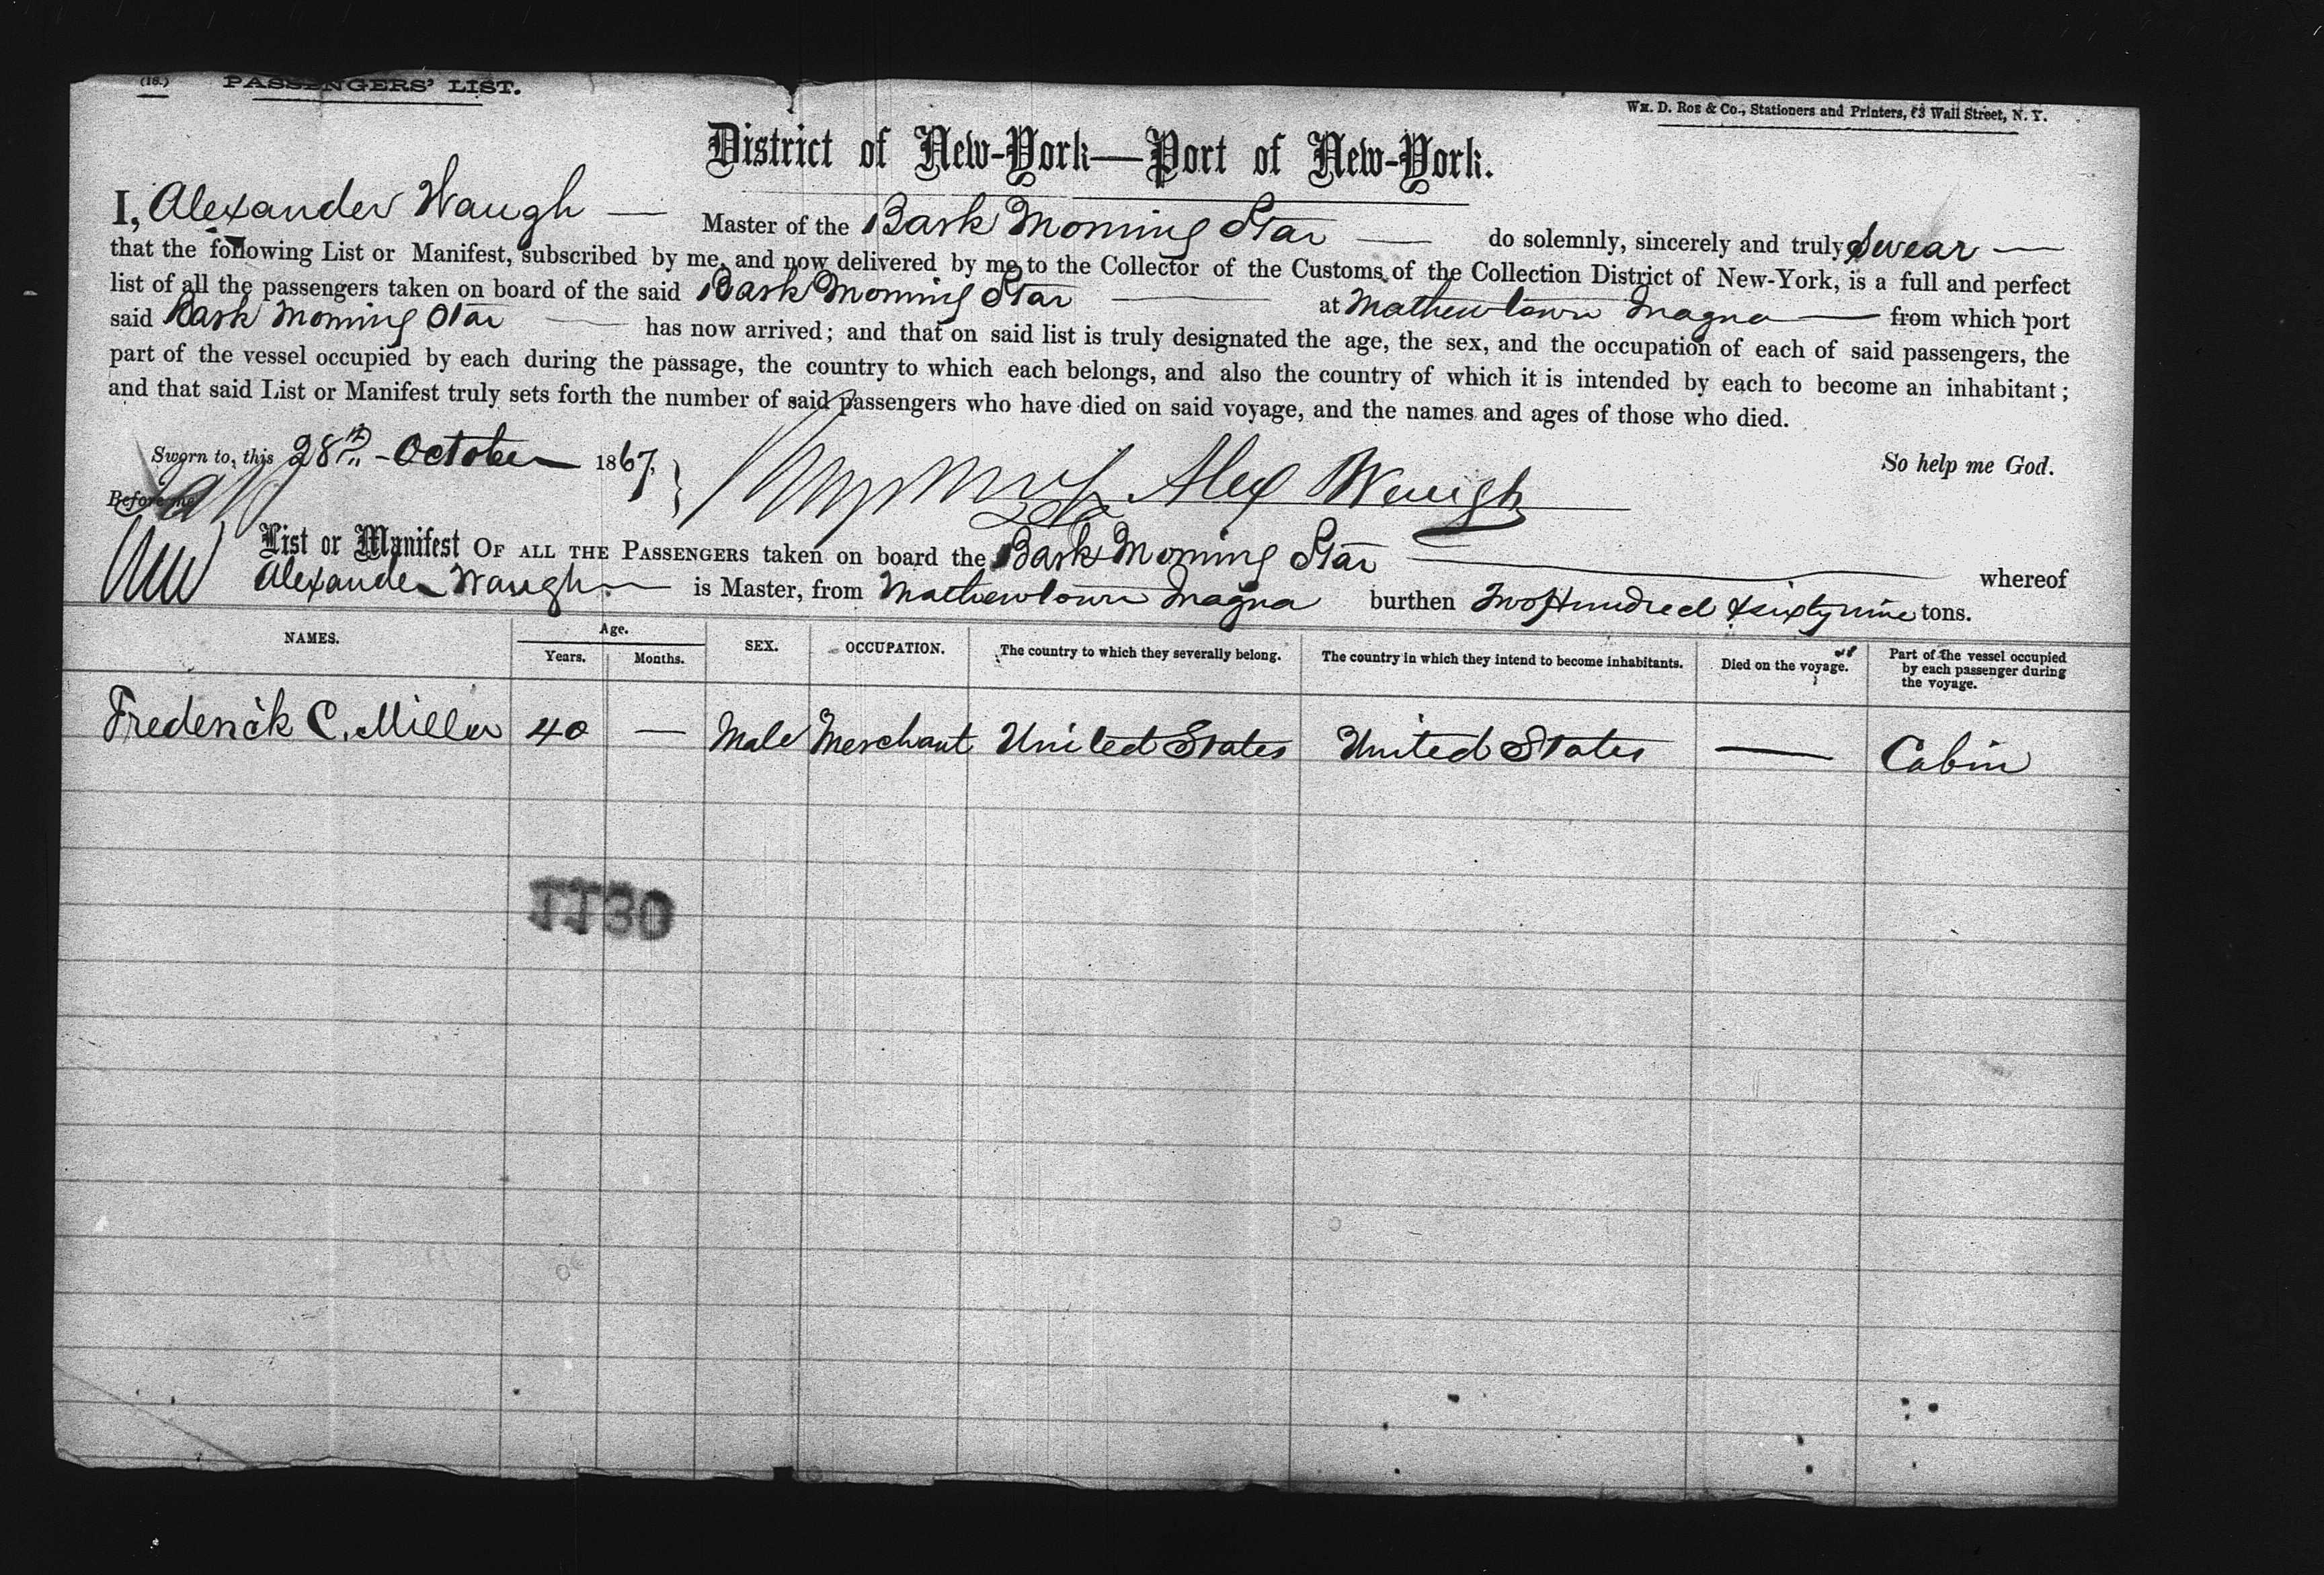 (18.) PASSENGERS' LIST.
Wm. D. Roe & Co., Stationers and Printers, 63 Wall Street, N. Y.
District of New-York—Port of New-York.
I, Alexander Waugh — Master of the Bark Morning Star — do solemnly, sincerely and truly Swear —
that the following List or Manifest, subscribed by me, and now delivered by me to the Collector of the Customs of the Collection District of New-York, is a full and perfect
list of all the passengers taken on board of the said Bark Morning Star — at Mathewtown Inagua — from which port
said Bark Morning Star — has now arrived; and that on said list is truly designated the age, the sex, and the occupation of each of said passengers, the
part of the vessel occupied by each during the passage, the country to which each belongs, and also the country of which it is intended by each to become an inhabitant;
and that said List or Manifest truly sets forth the number of said passengers who have died on said voyage, and the names and ages of those who died.
So help me God.
Sworn to, this 28th - October 1867,
Before me
Alex Waugh
List or Manifest OF ALL THE PASSENGERS taken on board the Bark Morning Star — whereof
Alexander Waugh — is Master, from Mathewtown Inagua burthen Two Hundred & sixty nine tons.
NAMES. Age. Years. Months. SEX. OCCUPATION. The country to which they severally belong. The country in which they intend to become inhabitants. Died on the voyage. Part of the vessel occupied by each passenger during the voyage.
Frederick C. Miller 40 — Male Merchant United States United States — Cabin
1130